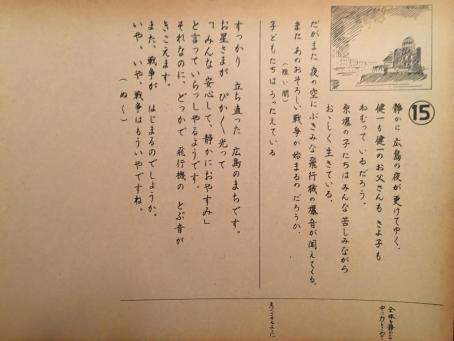 ⑮
静かに 広島の夜が更けてゆく、
健一も健一のお父さんも きよ子も
ねむって いるだろう、
原爆の子たちはみんな苦しみながら
おゝしく生きている、
だがまた 夜の空にぶきみな飛行機の爆音が聞えてくる、
また あのおそろしい戦争が始まるのだろうか、
子どもたちはうったえている
すっかり 立ち直った 広島のまちです。
お星さまが ぴか〱光って
「みんな安心して、静かにおやすみ」
と言っていらっしゃるようです。
それなのに、どっかで 飛行機の とぶ音が
きこえます。
また、戦争が はじまるのでしょうか。
いや、いや、戦争はもういやですね。
(ぬく)